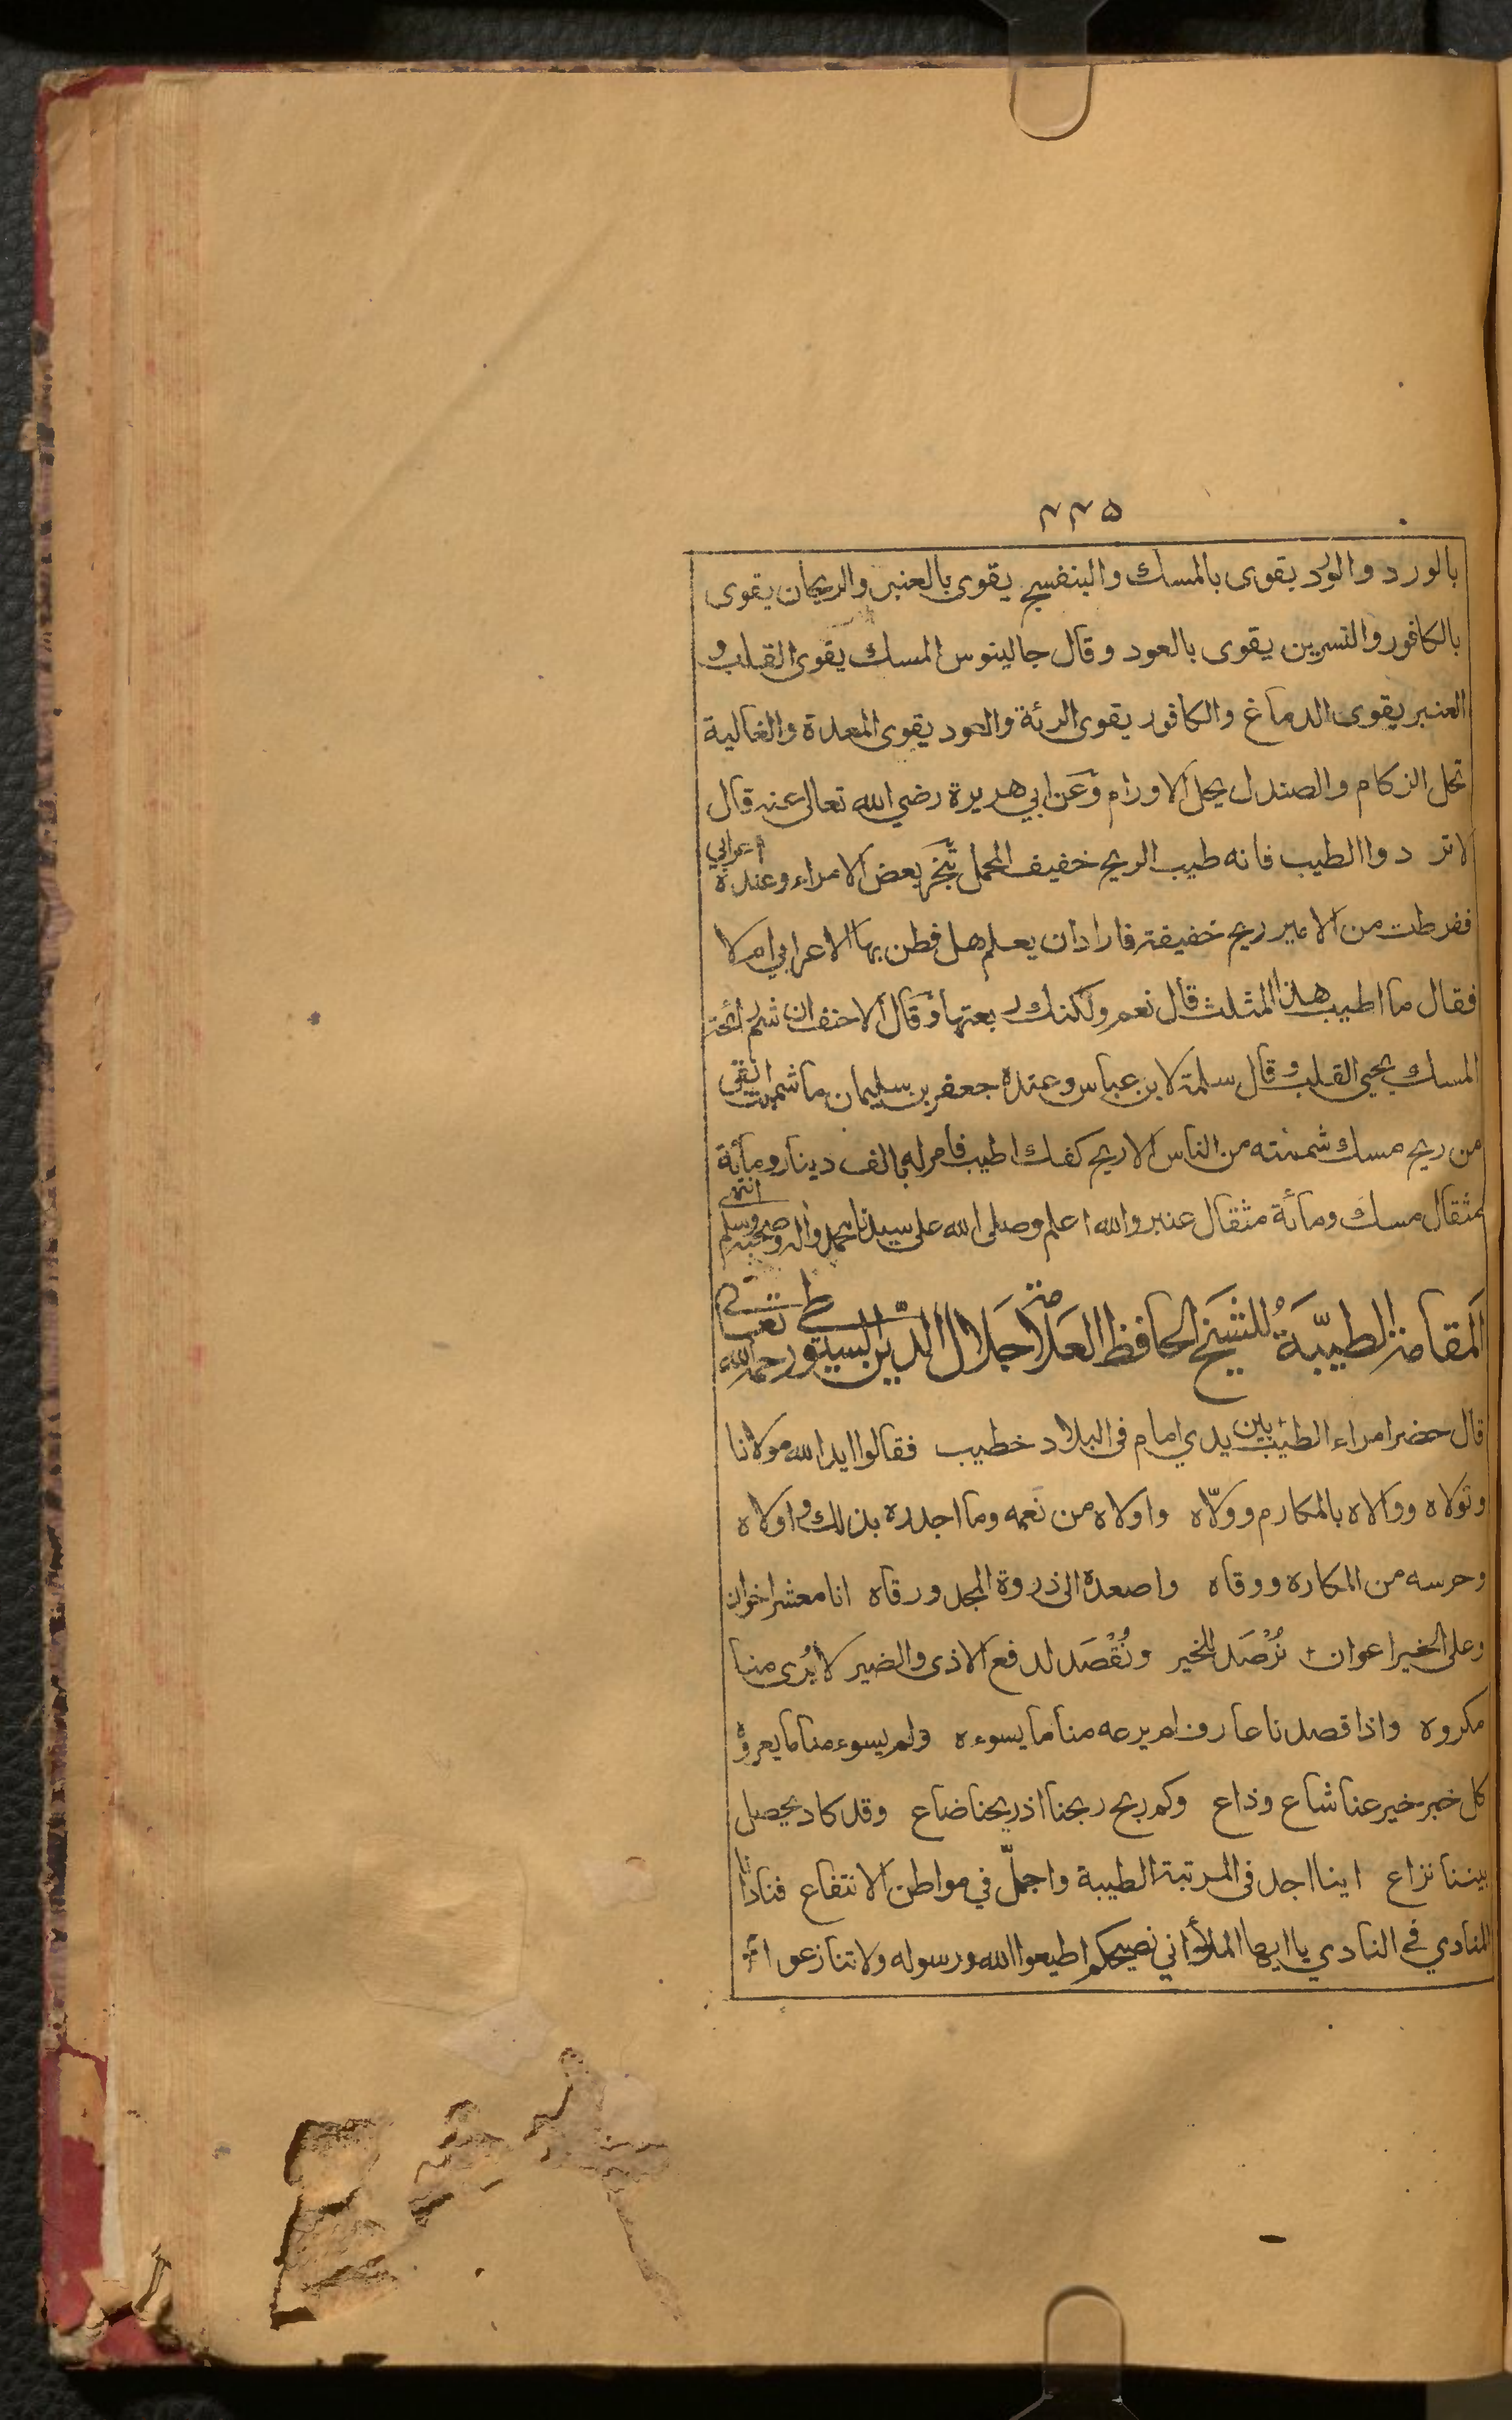 ۲۲۵
بالورد والورد يقوى بالمسك والبنفسج يقوى بالعنبر والريحان يقوى
بالكافور والنسرين يقوى بالعود وقال جالينوس المسك يقوى القلب و
العنبر يقوى الدماغ والكافور يقوى الرئة والعود يقوى المعدة والغالية
تحل الزكام والصندل يحل الاورام وعن ابي هريرة رضي الله تعالى عنه قال
لا تردوا الطيب فانه طيب الريح خفيف المحمل تبخر بعض الامراء وعنده اعرابي
ففرطت من الامير ريح خفيفة فاراد ان يعلم هل فطن بها الاعرابي ام لا
فقال ما اطيب هذا المثلث قال نعم ولكنك ربعتها وقال الاحنف ان شم رائحة
المسك يحيي القلب وقال سلمة لابن عباس وعنده جعفر بن سليمان ما شممت
من ريح مسك شممته من الناس الا ريح كفك اطيب فامر له بالف دينار ومائة
مثقال مسك ومائة مثقال عنبر والله اعلم وصلى الله على سيدنا محمد واله وصحبه وسلم انتهى
اَلمقامة الطيبّة للشيخ الحافظ العلامة جلال الدّين السيوطي رحمه الله تعالى
قال حضر امراء الطيب بين يدي امام في البلاد خطيب فقالوا ايد الله مولانا
وتولاه ووالاه بالمكارم وولّاه واولاه من نعمه وما اجدره بذلك واولاه
وحرسه من المكاره ووقاه واصعده الى ذروة المجد ورقاه انا معشر اخوان
وعلى الخير اعوان نُرْصَد للخير ونُقْصَد لدفع الاذى والضير لا يُرى منا
مكروه واذا قصدنا عارف لم يرعه منا ما يسوءه ولم يسوء منا ما يعروه
كل خبر خير عنا شاع وذاع وكم ربح ربحنا اذ ريحنا ضاع وقد كاد يحصل
بيننا نزاع اينا اجد في المرتبة الطيبة واجلّ في مواطن الانتفاع فنادانا
المنادي في النادي يا ايها الملأ اني نصيحكم اطيعوا الله ورسوله ولا تنازعوا